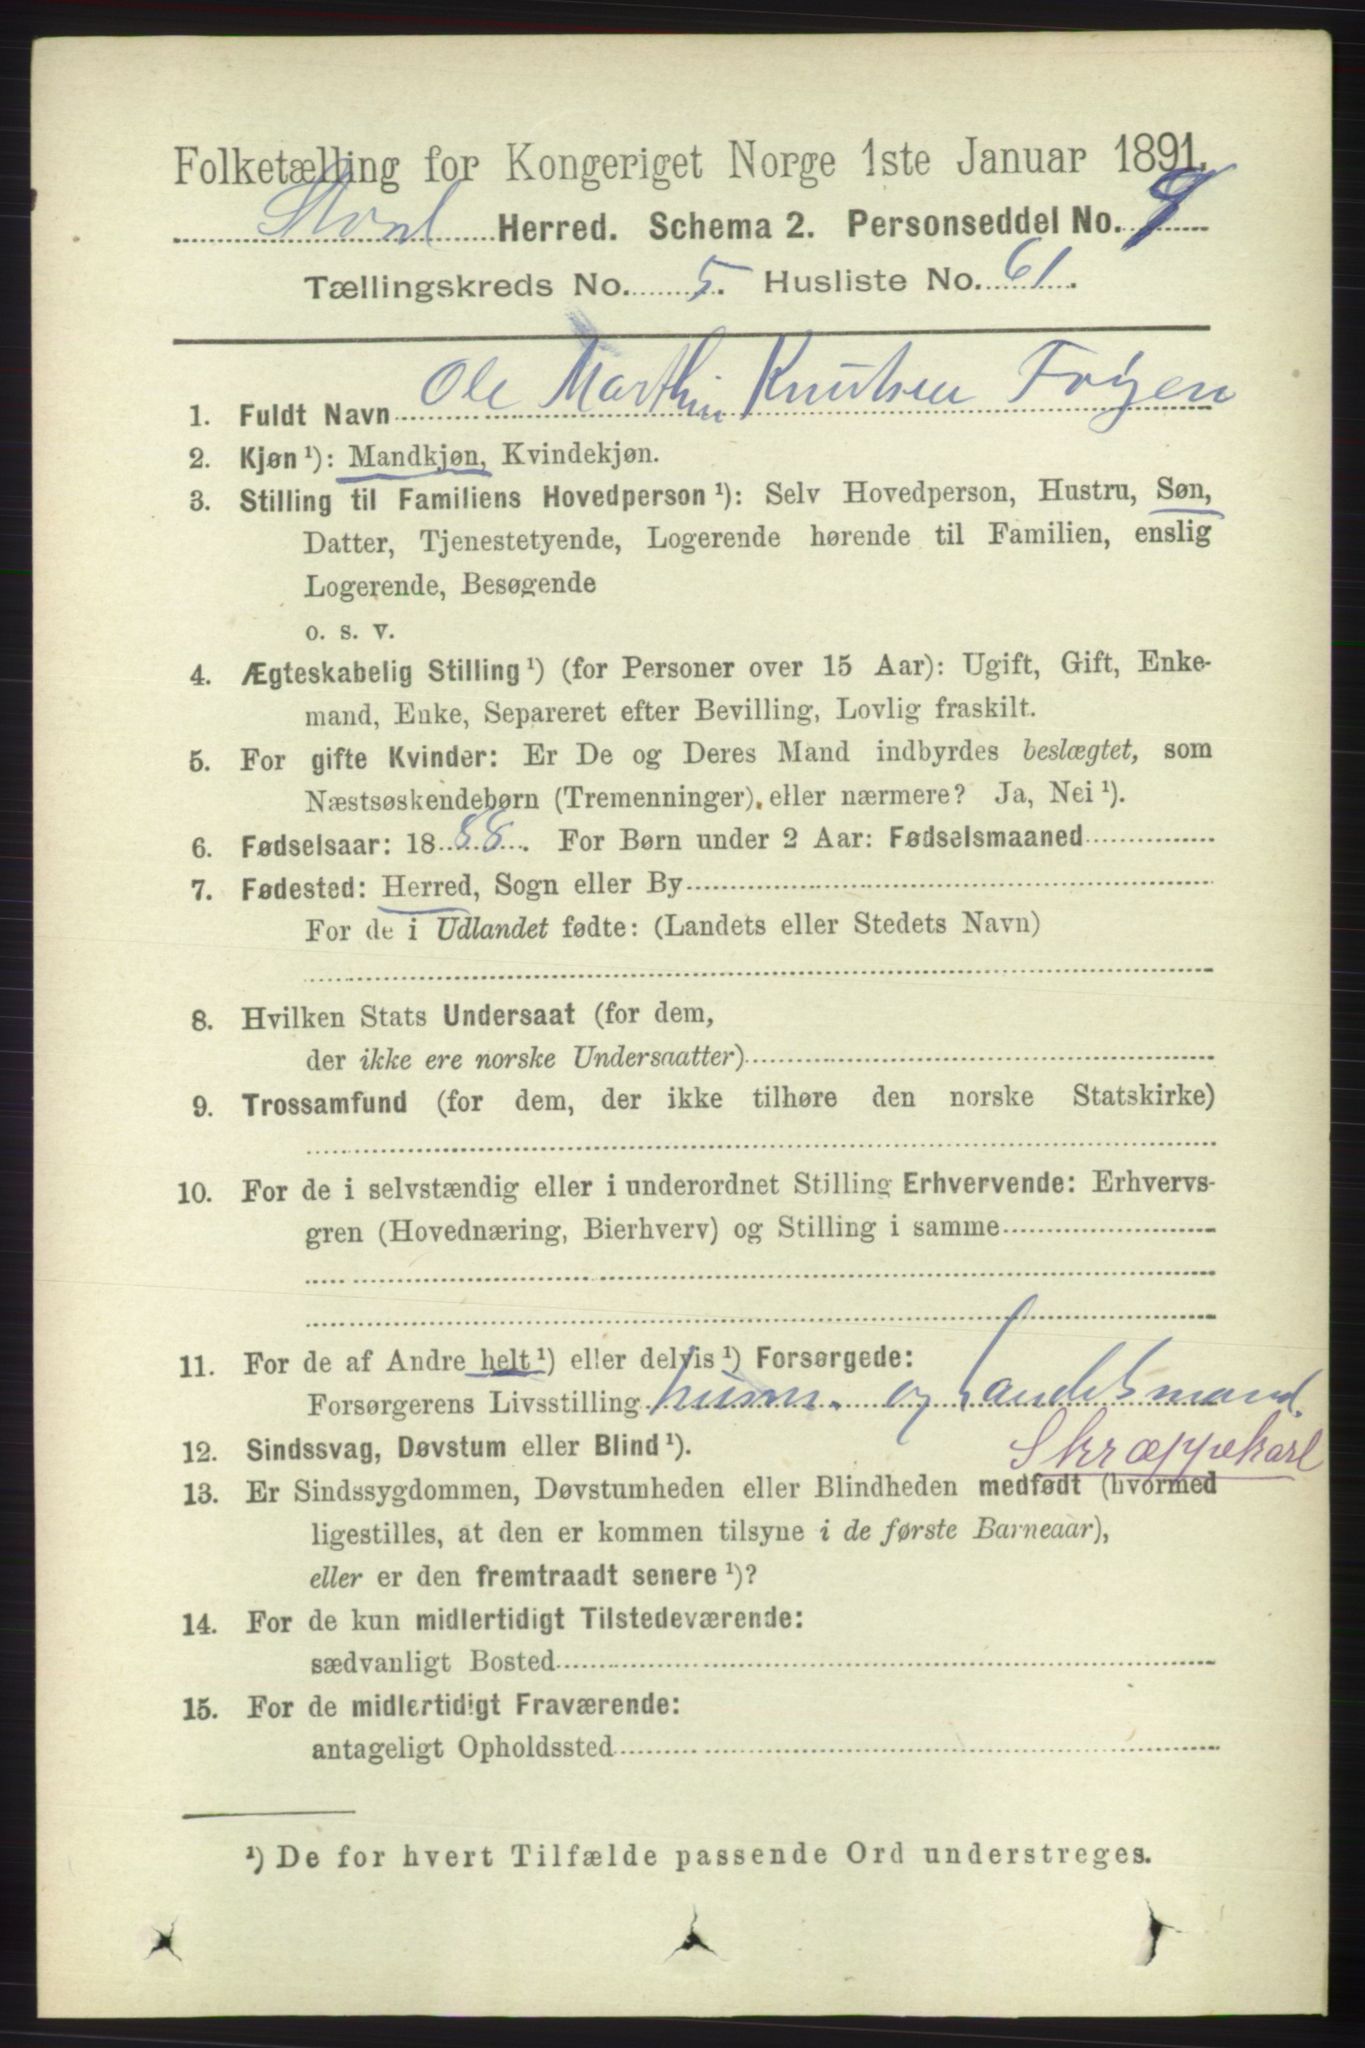 Folketælling for Kongeriget Norge 1ste Januar 1891.
Stord Herred. Schema 2. Personseddel No. 9
Tællingskreds No. 5. Husliste No. 61.
1. Fuldt Navn Ole Marthin Knutsen Frøyen
2. Kjøn ¹): Mandkjøn, Kvindekjøn.
3. Stilling til Familiens Hovedperson ¹): Selv Hovedperson, Hustru, Søn,
Datter, Tjenestetyende, Logerende hørende til Familien, enslig
Logerende, Besøgende
o. s. v.
4. Ægteskabelig Stilling ¹) (for Personer over 15 Aar): Ugift, Gift, Enke-
mand, Enke, Separeret efter Bevilling, Lovlig fraskilt.
5. For gifte Kvinder: Er De og Deres Mand indbyrdes beslægtet, som
Næstsøskendebørn (Tremenninger), eller nærmere? Ja, Nei ¹).
6. Fødselsaar: 1888. For Børn under 2 Aar: Fødselsmaaned
7. Fødested: Herred, Sogn eller By
For de i Udlandet fødte: (Landets eller Stedets Navn)
8. Hvilken Stats Undersaat (for dem,
der ikke ere norske Undersaatter)
9. Trossamfund (for dem, der ikke tilhøre den norske Statskirke)
10. For de i selvstændig eller i underordnet Stilling Erhvervende: Erhvervs-
gren (Hovednæring, Bierhverv) og Stilling i samme
11. For de af Andre helt ¹) eller delvis ¹) Forsørgede:
Forsørgerens Livsstilling og Handelsmand.
Skræppekarl
12. Sindssvag, Døvstum eller Blind ¹).
13. Er Sindssygdommen, Døvstumheden eller Blindheden medfødt (hvormed
ligestilles, at den er kommen tilsyne i de første Barneaar),
eller er den fremtraadt senere ¹)?
14. For de kun midlertidigt Tilstedeværende:
sædvanligt Bosted
15. For de midlertidigt Fraværende:
antageligt Opholdssted
¹) De for hvert Tilfælde passende Ord understreges.